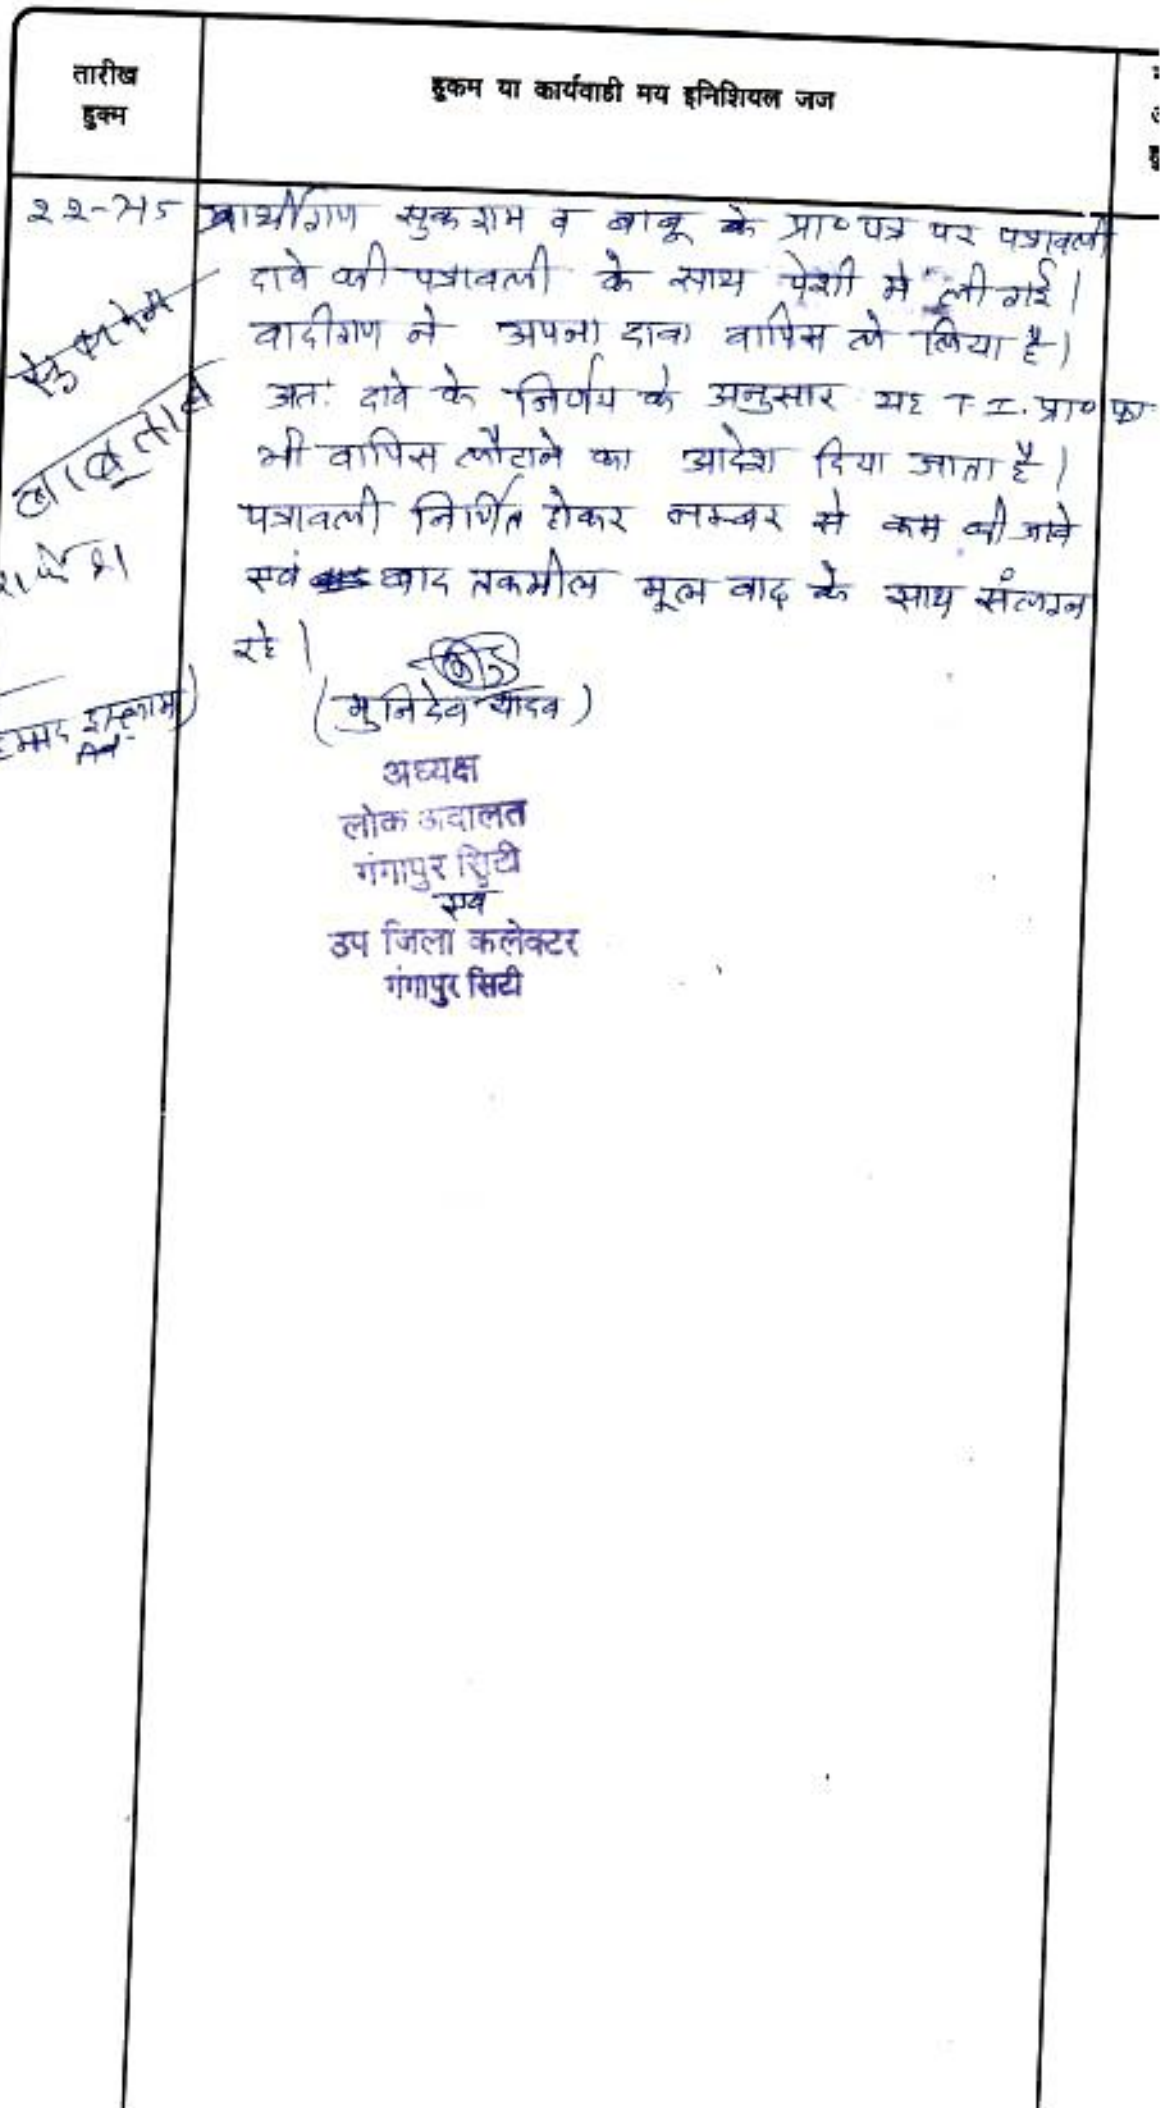 तारीख
हुक्म
हुकम या कार्यवाही मय इनिशियल जज
प्रार्थीगण सुकराम व बाबू के प्रा० पत्र पर पत्रावली
दावे की पत्रावली के साथ पेशी मे ली गई।
वादीगण ने अपना दावा वापिस ले लिया है।
अतः दावे के निर्णय के अनुसार यह T.I. प्रा० पत्र
भी वापिस लौटाने का आदेश दिया जाता है।
पत्रावली निर्णित होकर नम्बर से कम की जावे
एवं बाद तकमील मूल वाद के साथ संलग्न
रहे।
(मुनिदेव यादव)
अध्यक्ष
लोक अदालत
गंगापुर सिटी
एवं
उप जिला कलेक्टर
गंगापुर सिटी
22-
बाबूलाल
इस्लाम)